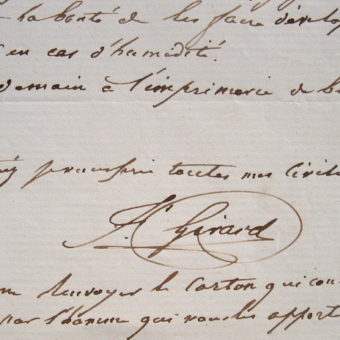 la bonté de les faire dévelop
en cas d'humidité.
demain à l'imprimerie de b
toutes mes civili
A. Girard
renvoyer le carton qui con
par l'homme qui vous les apport